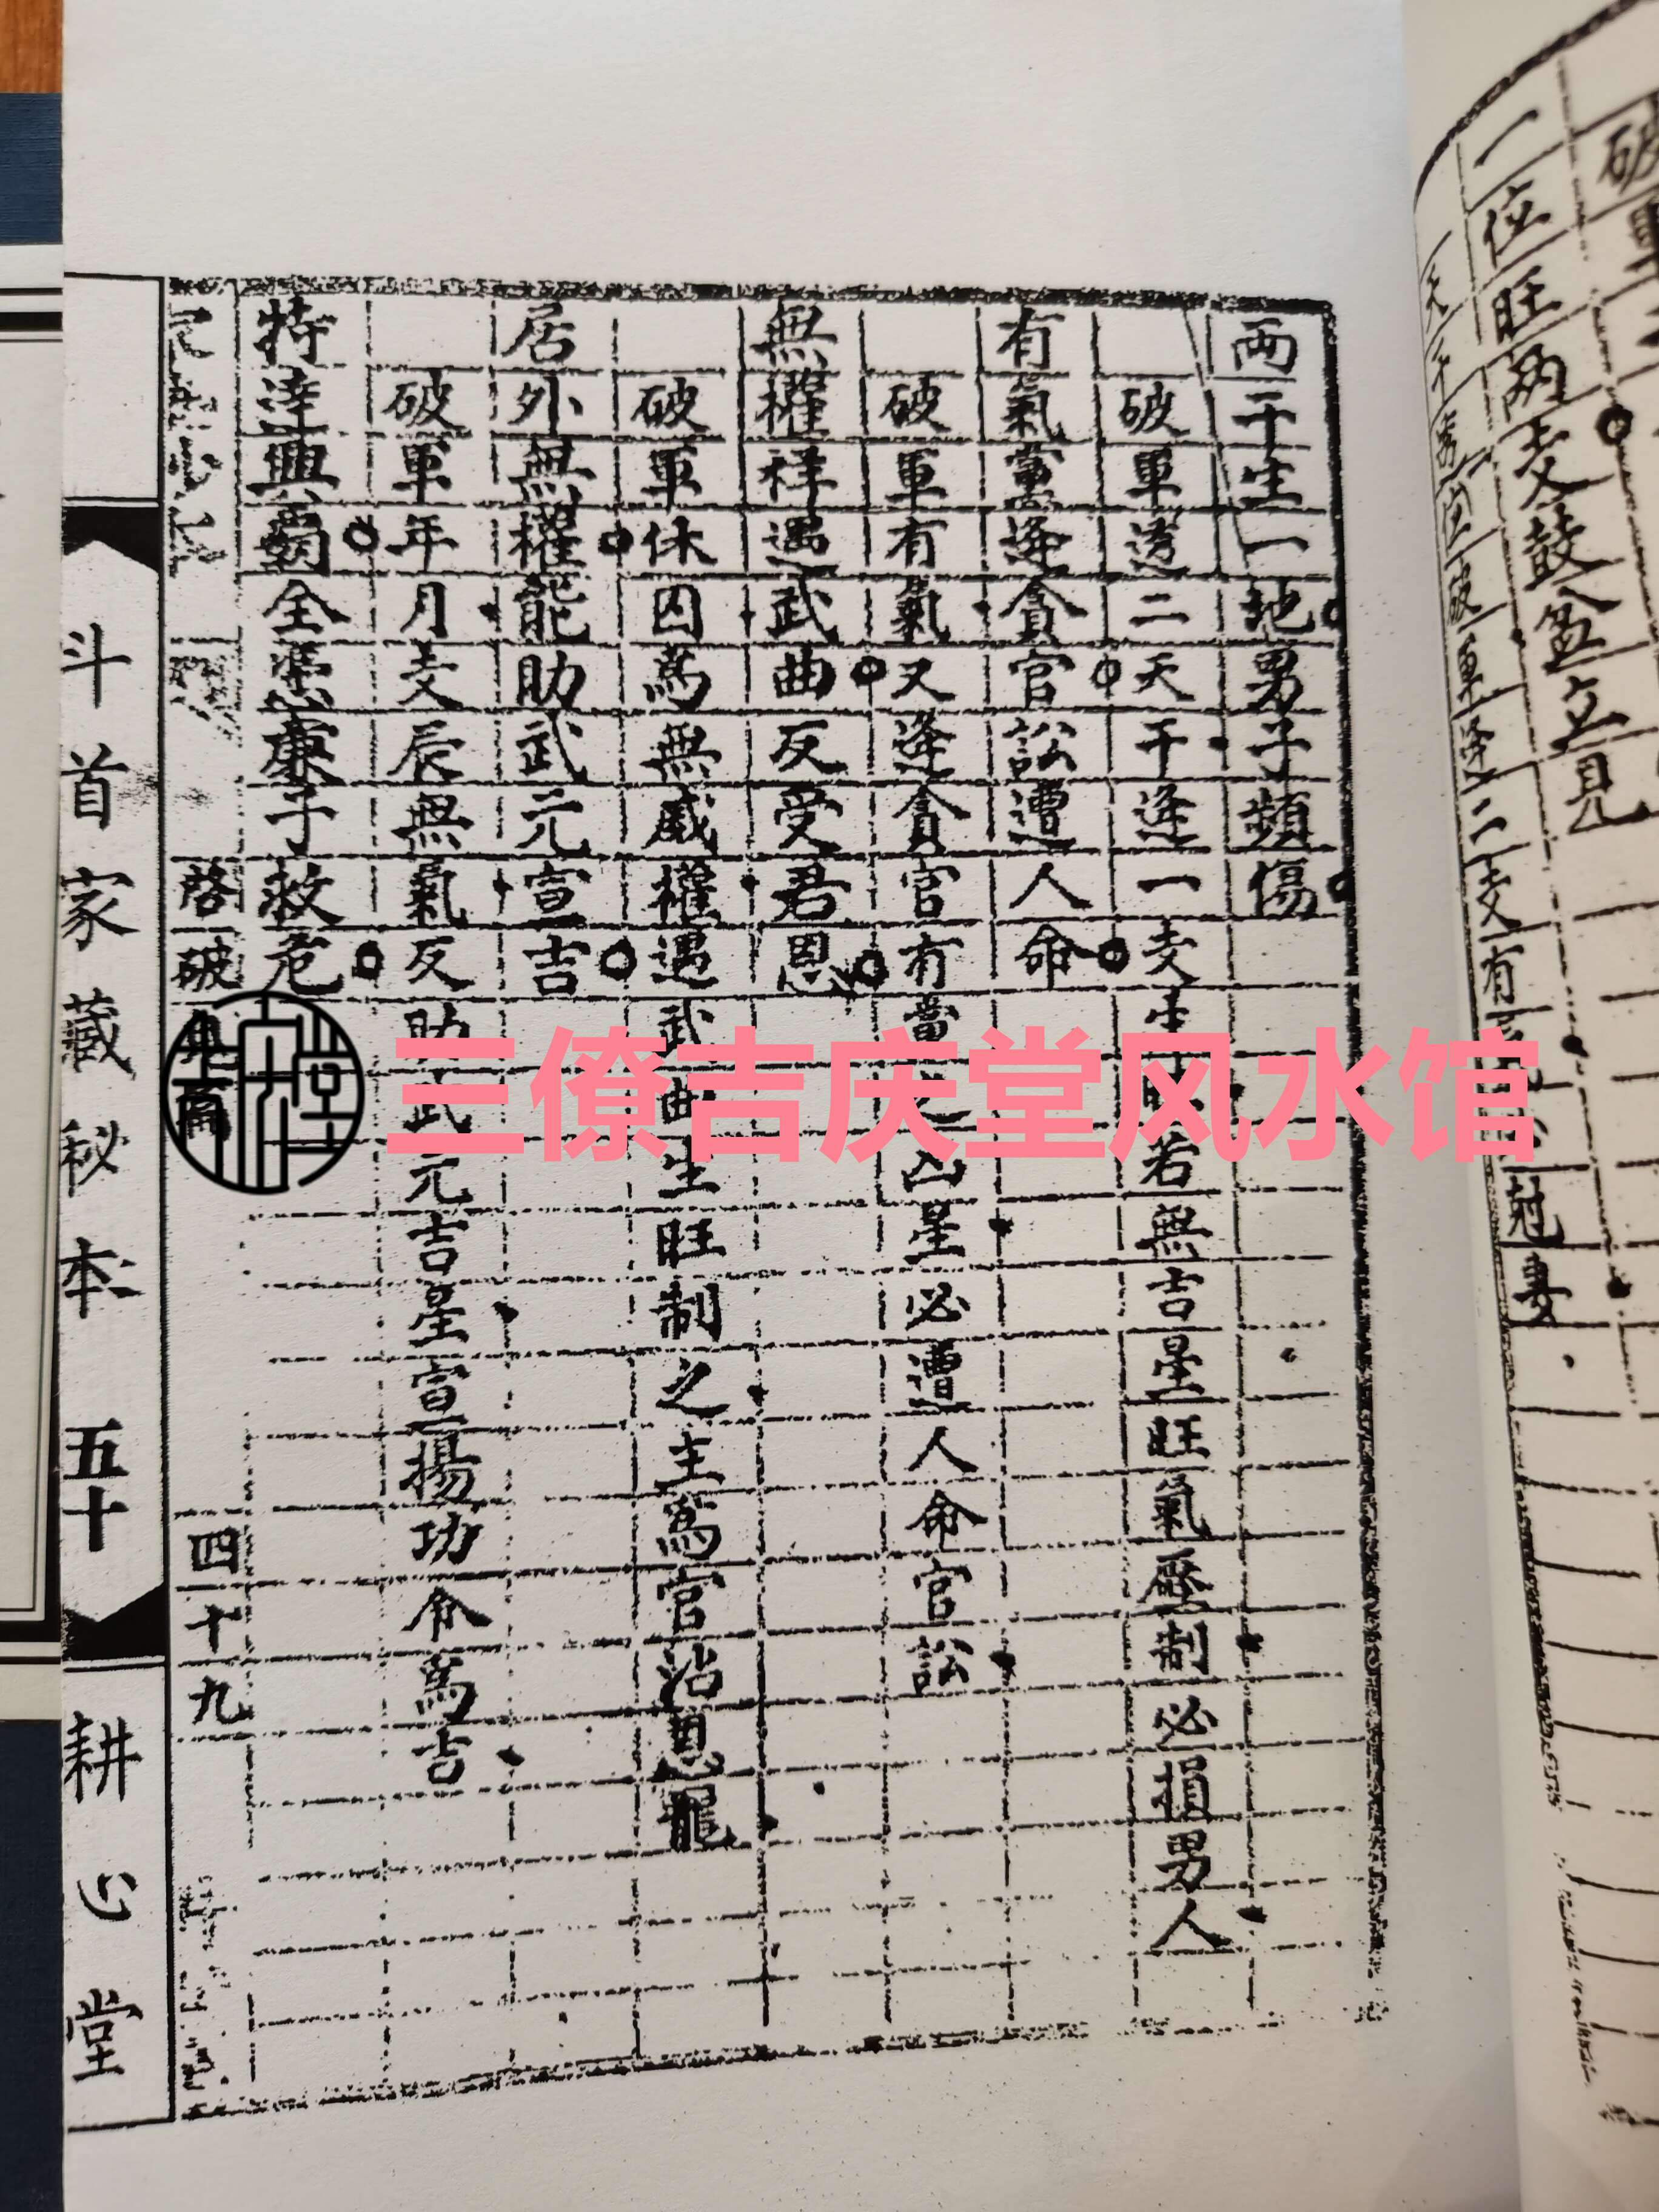 破軍
一位旺兩支鼓盆立見
兩干生一地男子頻傷
破軍透二天干逢一支生旺若無吉星旺氣壓制必損男人
有氣黨逢貪官訟遭人命
破軍有氣又逢貪官有當之凶星必遭人命官訟
無權祥遇武曲反受君恩
破軍休囚為無威權遇武曲生旺制之主為官沾恩寵
居外無權能助武元宣吉
破軍年月支辰無氣反助武元吉星宣揚功令為吉
特達興翁全憑廉子救危
啓破軍
四十九
斗首家藏秘本 五十 耕心堂
三僚吉庆堂风水馆